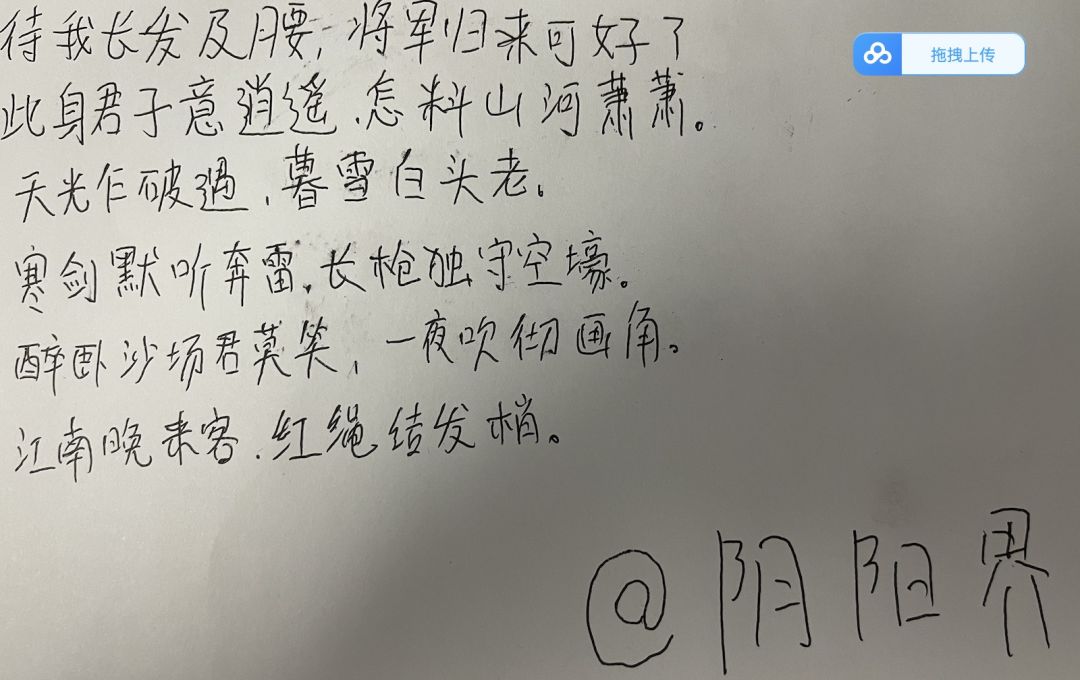 待我长发及腰，将军归来可好了
此身君子意逍遥，怎料山河萧萧。
天光乍破遇，暮雪白头老。
寒剑默听奔雷，长枪独守空壕。
醉卧沙场君莫笑，一夜吹彻画角。
江南晚来客，红绳结发梢。
@阴阳界
拖拽上传